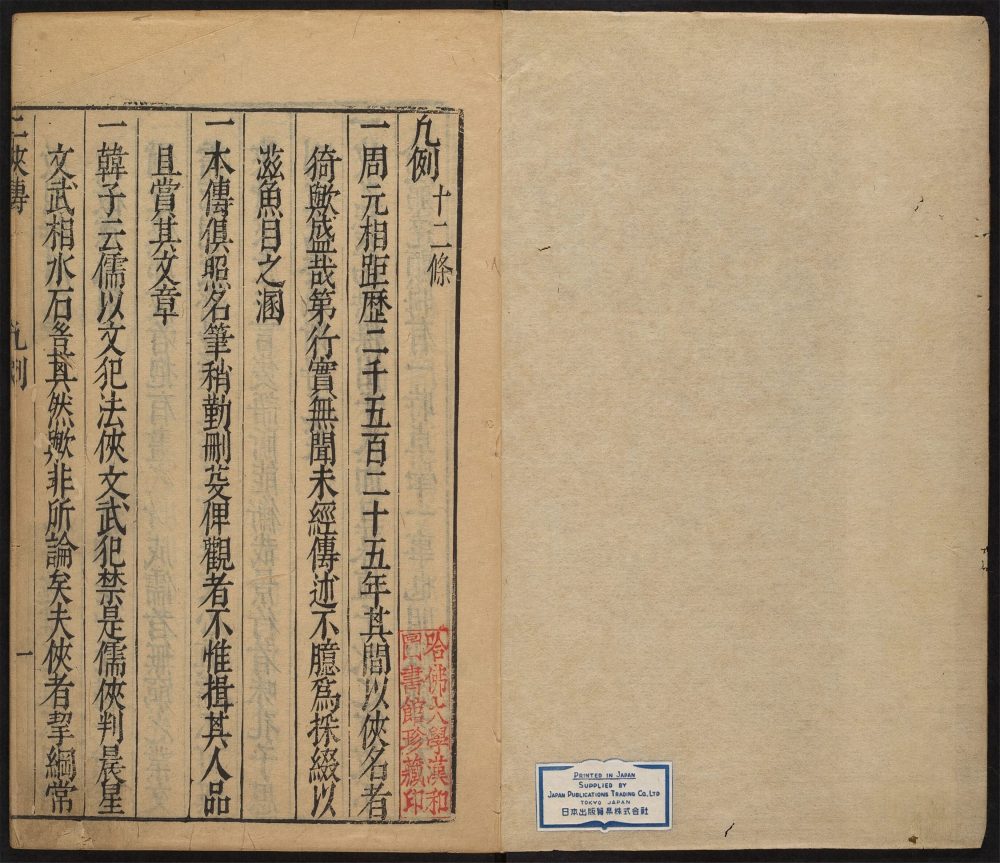 凡例 十二條
一周元相距歷二千五百二十五年其間以俠名者
猗歟盛哉第行實無聞未經傳述不臆爲採綴以
滋魚目之溷
一本傳俱照名筆稍勤刪芟俾觀者不惟揖其人品
且賞其文章
一韓子云儒以文犯法俠文武犯禁是儒俠判晨星
文武相水石各其然歟非所論矣夫俠者挈綱常
二俠傳 凡例 一
哈佛大學漢和
圖書館珍藏印
PRINTED IN JAPAN
SUPPLIED BY
JAPAN PUBLICATIONS TRADING CO., LTD
TOKYO JAPAN
日本出版貿易株式会社